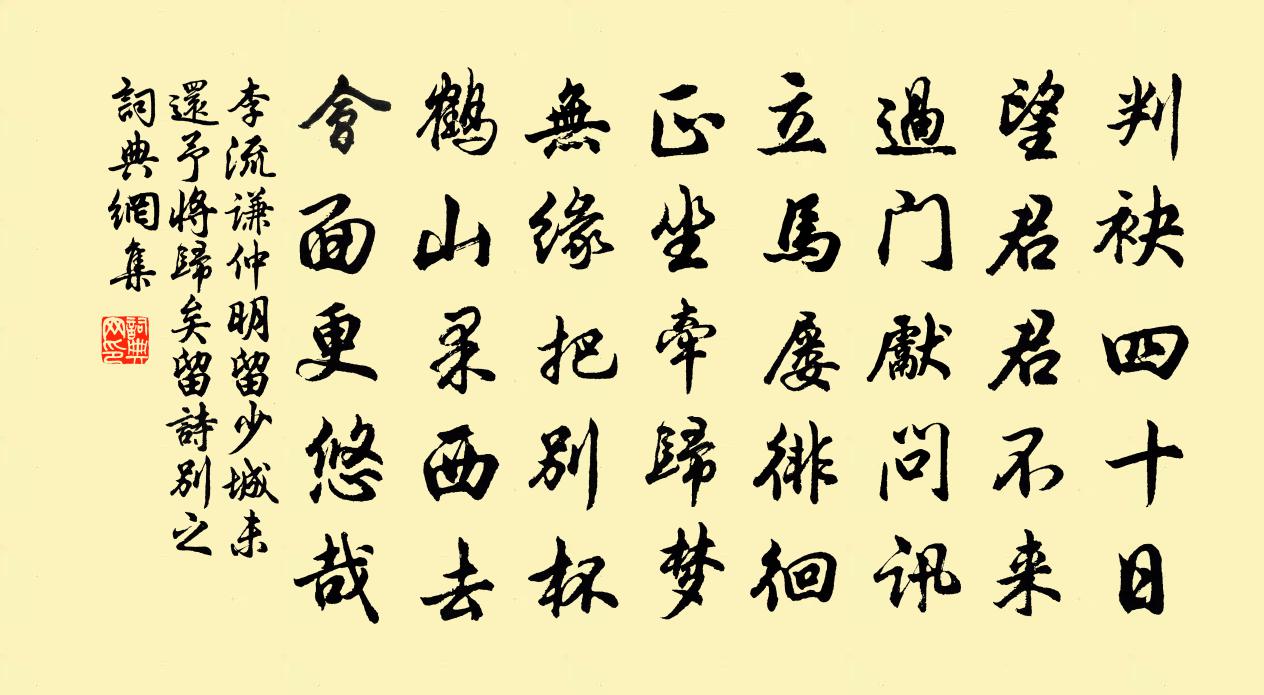 判袂四十日
望君君不来
過門獻問訊
立馬屢徘徊
正坐牽歸梦
無緣把別杯
鶴山果西去
會面更悠哉
李流謙仲明留少城未
還予將歸矣留詩別之
詞典網集
詞典网印